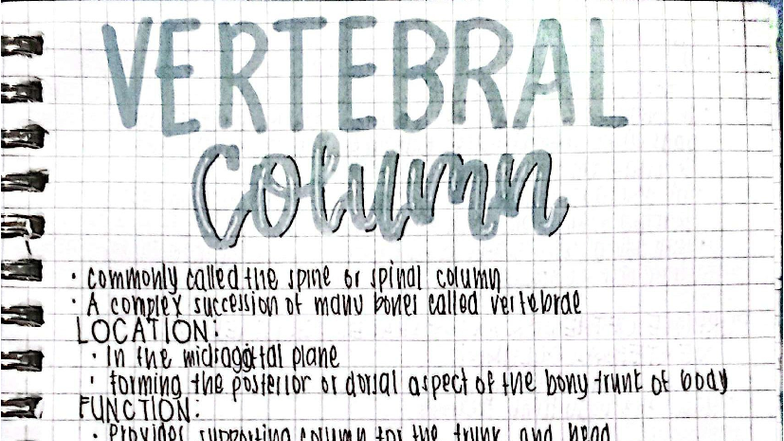 VERTEBRAL
Column
• commonly called the spine or spinal column
• A complex succession of many bones called vertebrae
LOCATION:
• In the midsagittal plane
• forming the posterior or dorsal aspect of the bony trunk of body
FUNCTION:
• Provides supporting column for the trunk and head